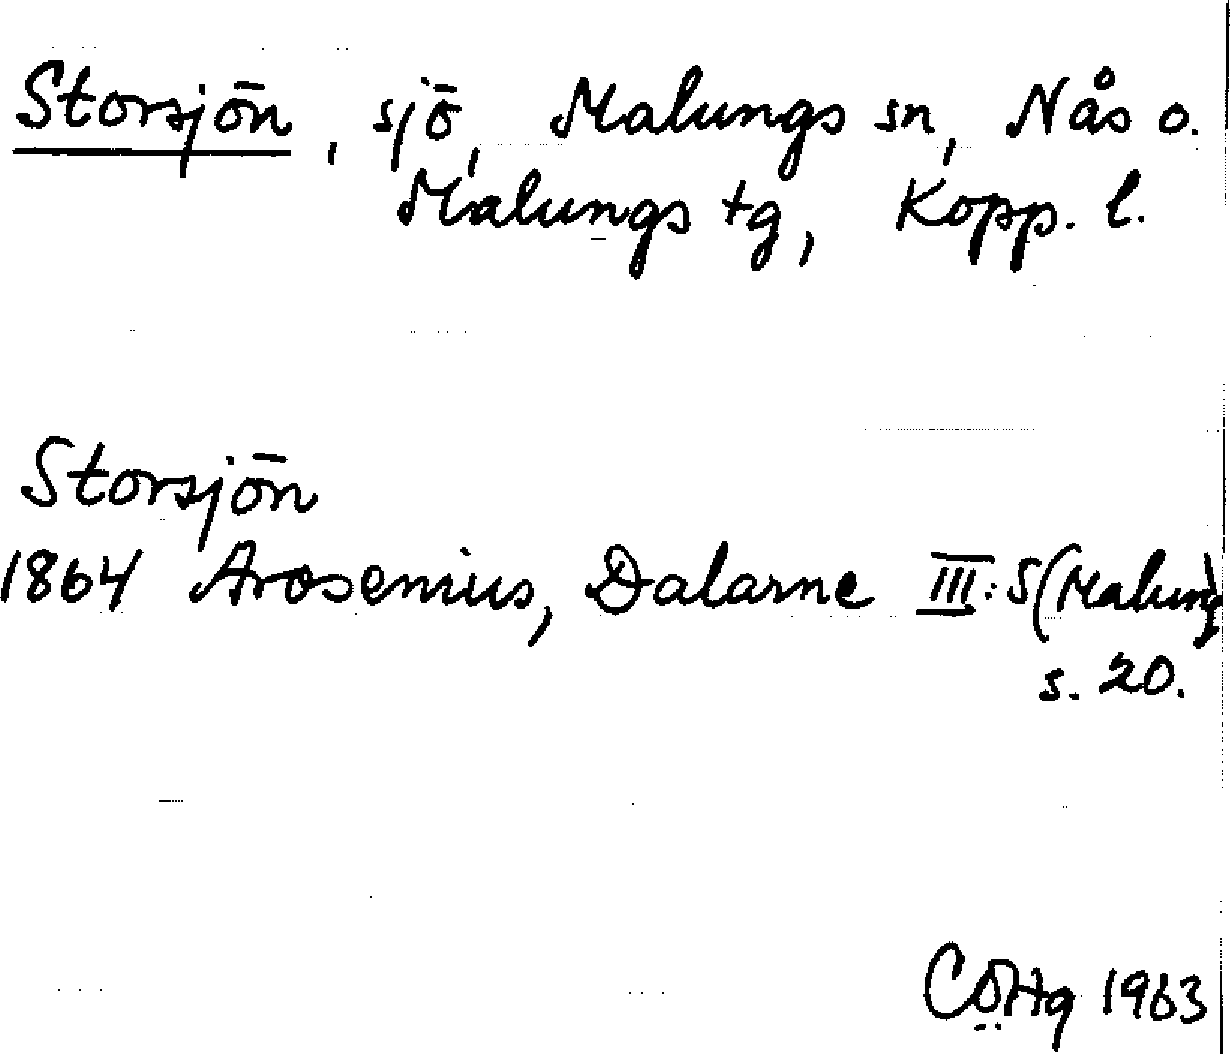 Storsjön, sjö, Malungs sn, Nås o.
Malungs tg, Kopp. l.
Storsjön
1864 Arosenius, Dalarne III: 5 (Malung)
s. 20.
1963